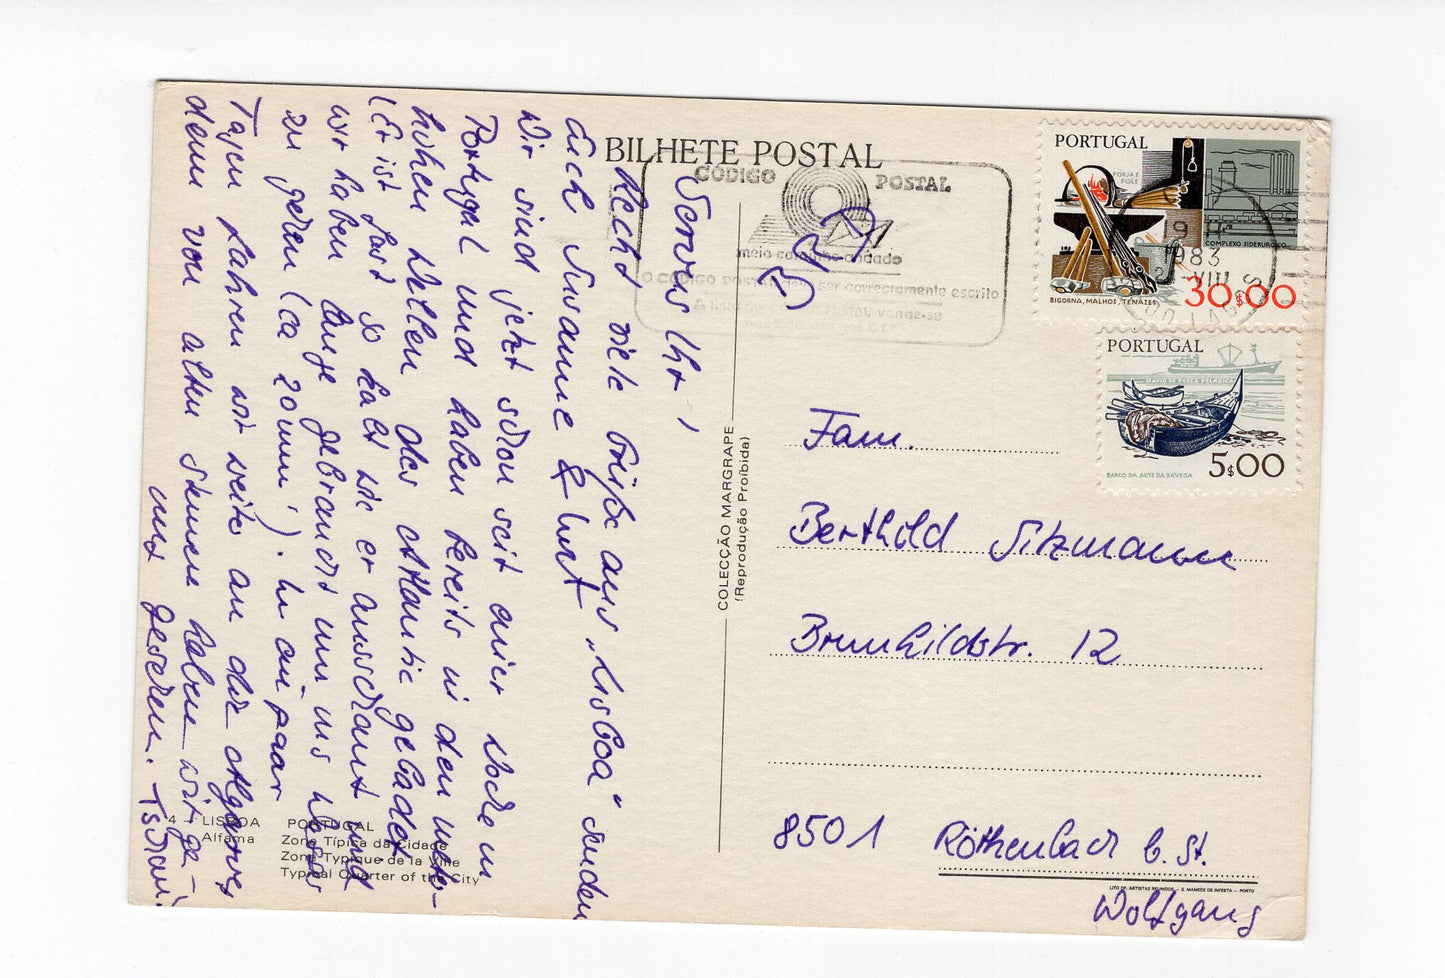 BILHETE POSTAL
CÓDIGO POSTAL
meio caminho andado
O CÓDIGO POSTAL deve ser correctamente escrito
POSTAL vende-se
PORTUGAL
FORJA E FOLE
COMPLEXO SIDERURGICO
BIGORNA, MALHOS, TENAZES
30$00
19 H
1983
VIII
LAGOS
PORTUGAL
NAVIO DE PESCA PELAGICA
BARCO DA ARTE DA XÁVEGA
5$00
BRD
Servus Ihr!
Recht viele Grüße aus "Lisboa" senden
dich Susanne & Kurt
Wir sind jetzt schon seit einer Woche in
Portugal und haben bereits in den meter-
hohen Wellen des Atlantic gebadet.
(Er ist fast so kalt wie er ausschaut und
wir haben lange gebraucht um ins Wasser
zu gehen (ca 20 min!). In ein paar
Tagen fahren wir weiter an die Algarve
denn von alten Steinen haben wir ge-
nug gesehen. Tschau!
COLECÇÃO MARGRAPE
(Reprodução Proíbida)
Fam.
Berthild Sitzmann
Brunhildstr. 12
8501 Röthenbach b. St.
Wolfgang
4 - LISBOA PORTUGAL
Alfama Zona Típica da Cidade
Zone Typique de la Ville
Typical Quarter of the City
LITO OF. ARTISTAS REUNIDOS - S. MAMEDE DE INFESTA - PORTO